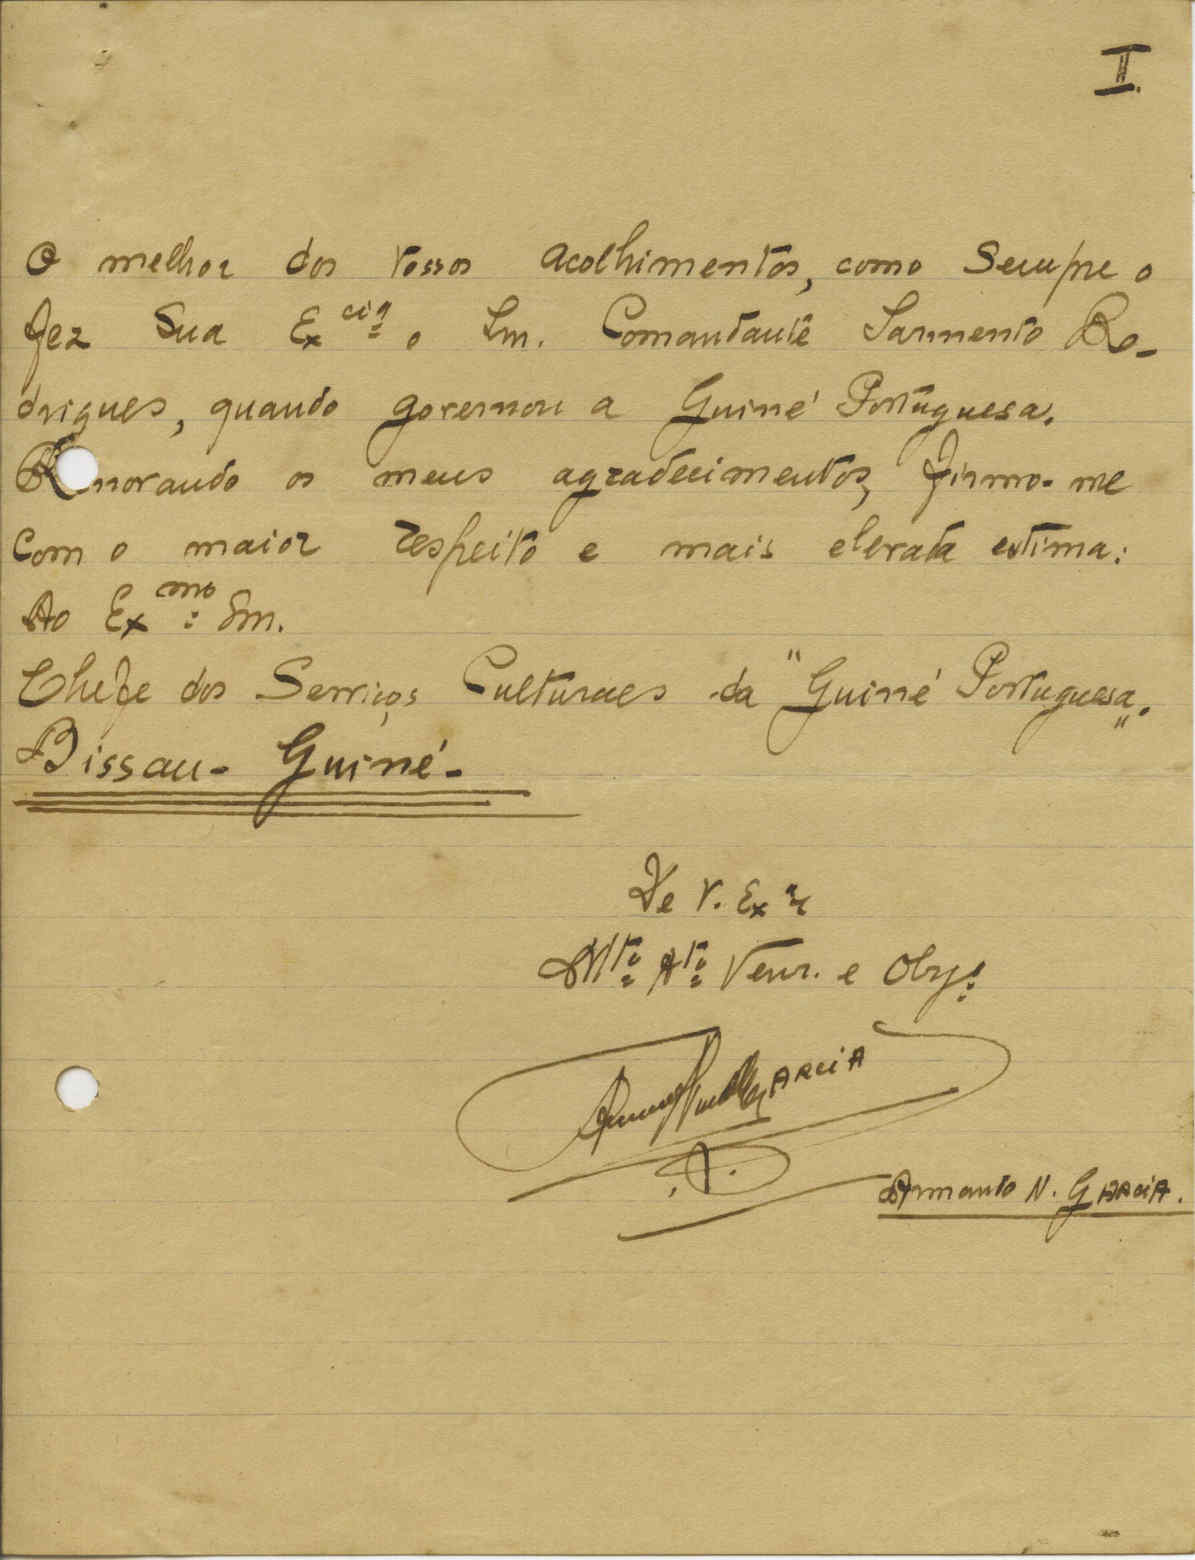 I.
O melhor dos vossos acolhimentos, como sempre o
fez Sua Ex cia o Snr. Comandante Sarmento Ro-
drigues, quando governou a Guiné Portuguesa.
R novando os meus agradecimentos, firmo-me
com o maior respeito e mais elevada estima:
Ao Ex mo: Snr.
Chefe dos Serviços Culturaes da "Guiné Portuguesa".
Bissau - Guiné -
De V. Ex a
Mto Ato Venr. e Obgo
GARCiA
Armando N. GARCiA.